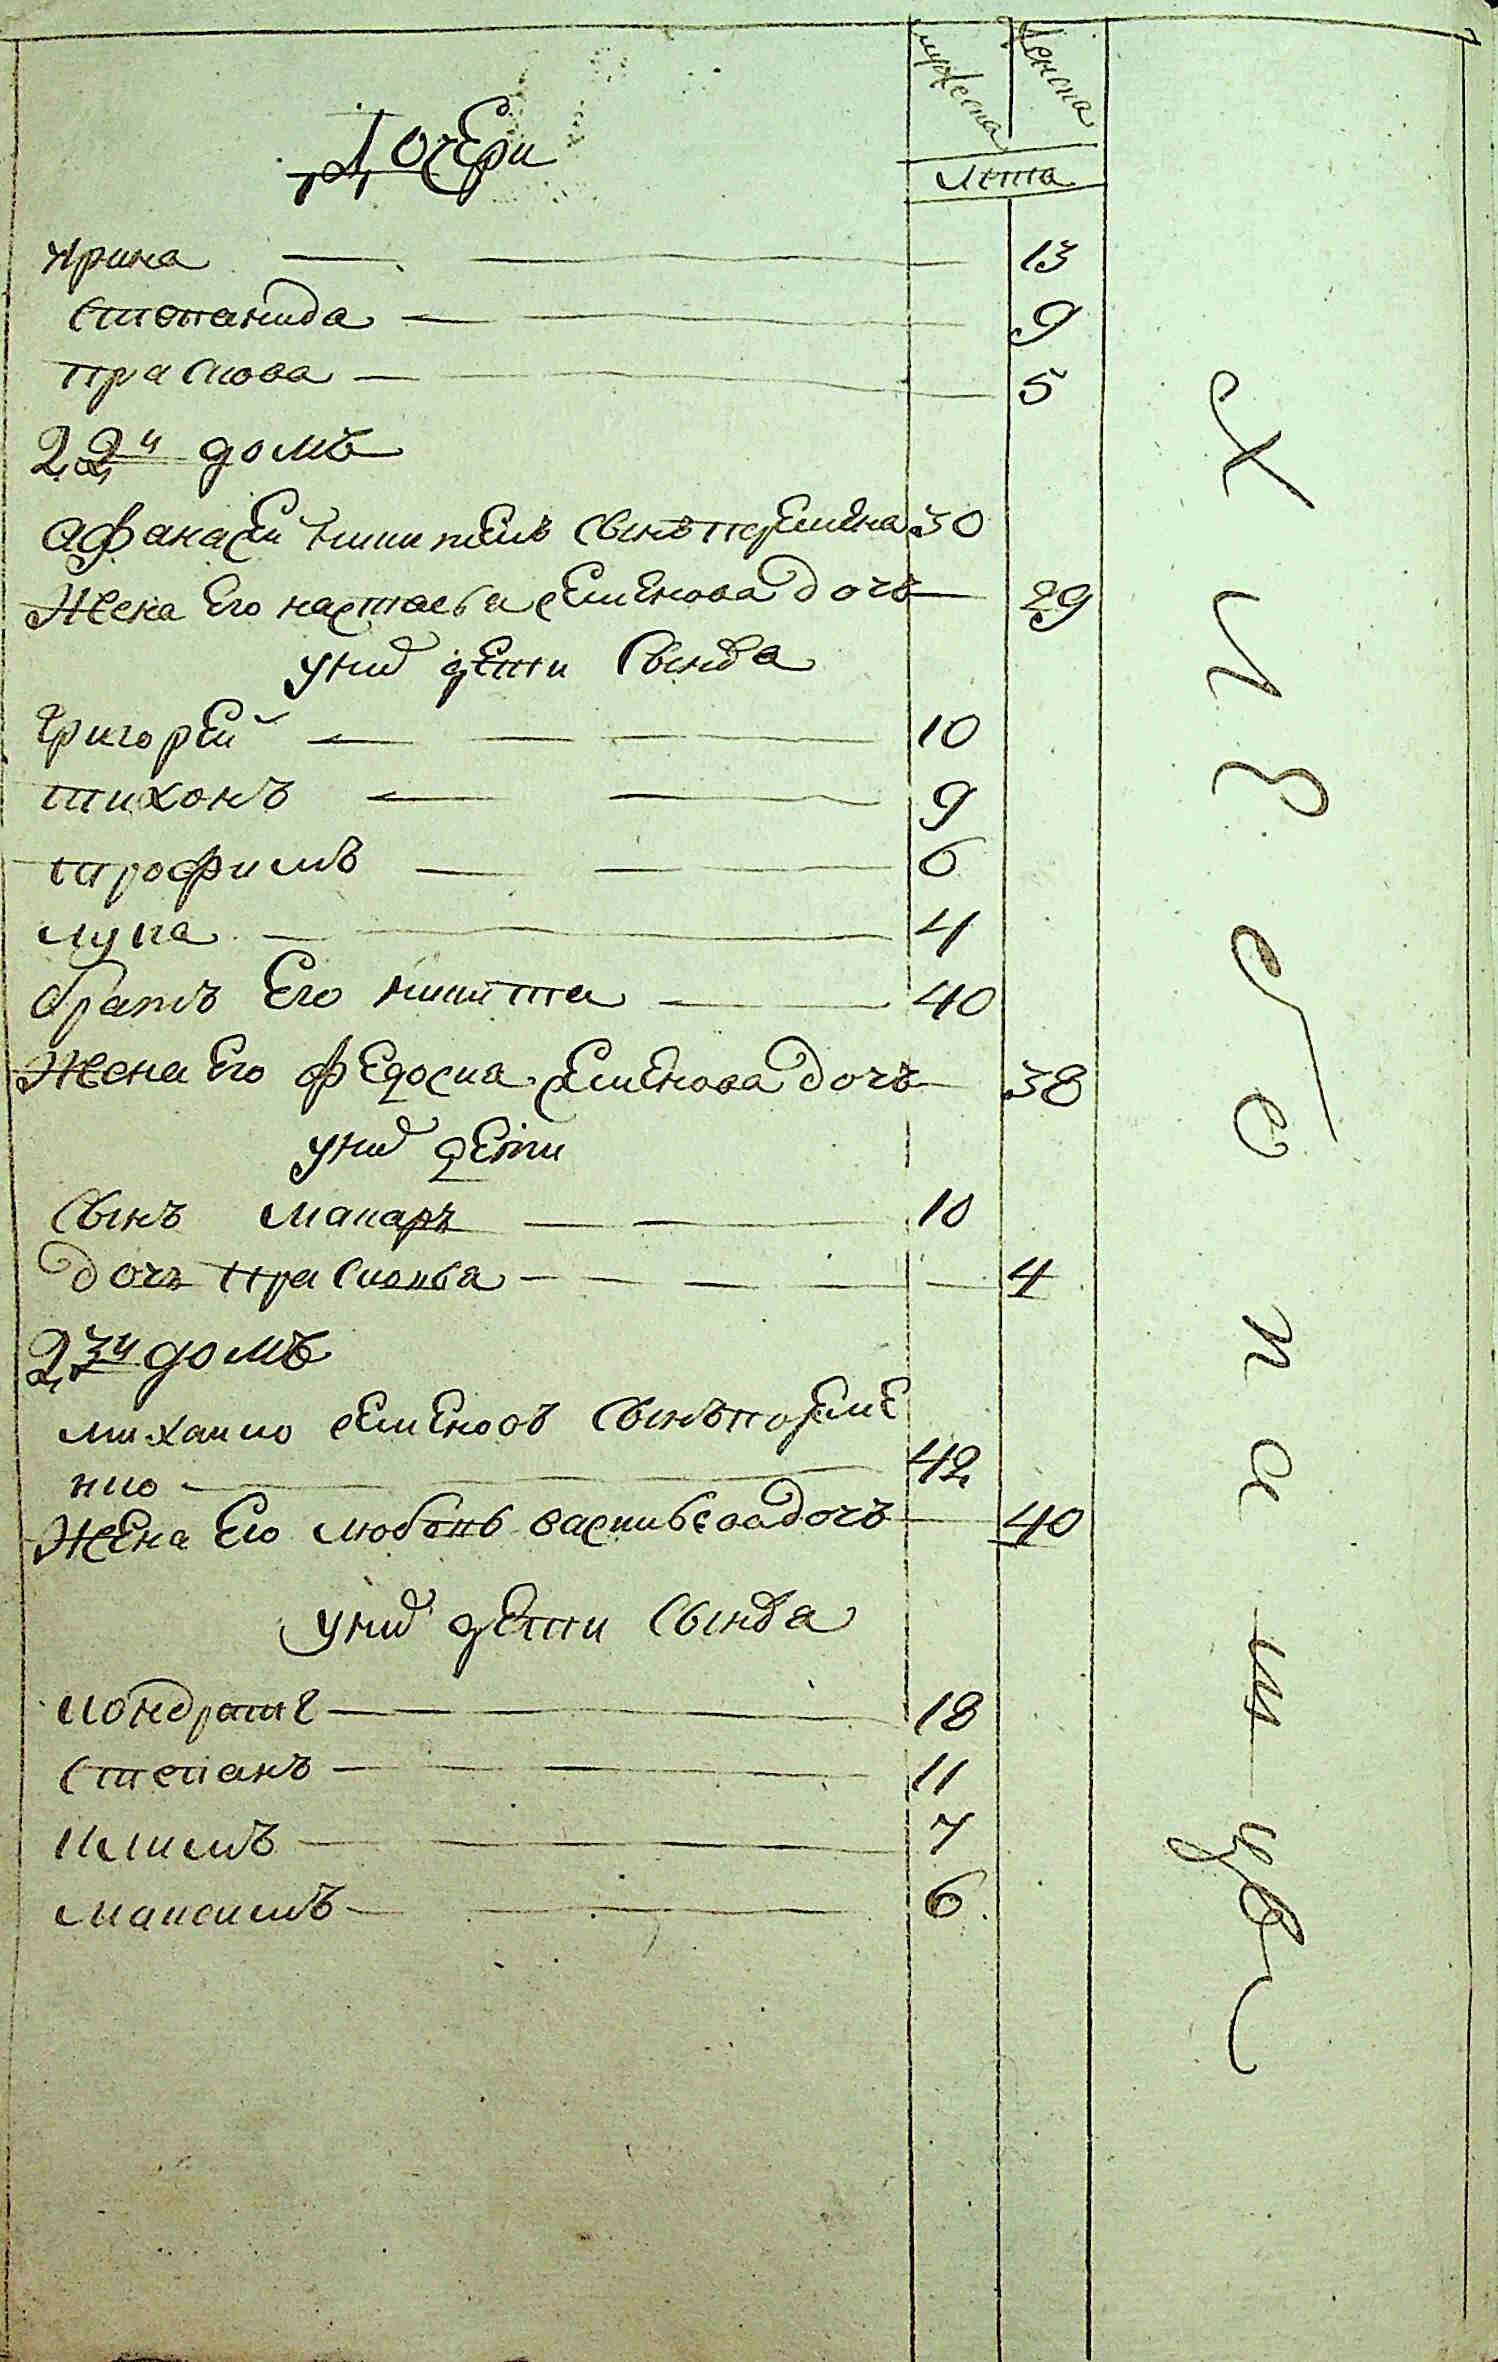 мужеска
женска
Лета
Дочери
Ирина 13
Степанида 9
прасковя 5
22й домъ
Афанасей Никитенъ сынъ 30
Жена Его настасья семенова дочь 29
у них дети сынвя
Григорей 10
тихонъ 9
трофимъ 6
лука 4
братъ Его никита 40
Жена Его федосиа семенова дочь 38
у них дети
сынъ макаръ 10
дочь прасковья 4
23й домъ
михаило семеновъ сынъ
42
Жена Его любовь васильева дочь 40
у них дети сынвя
кондратей 18
степанъ 11
климъ 7
максимъ 6
хлебопашцы